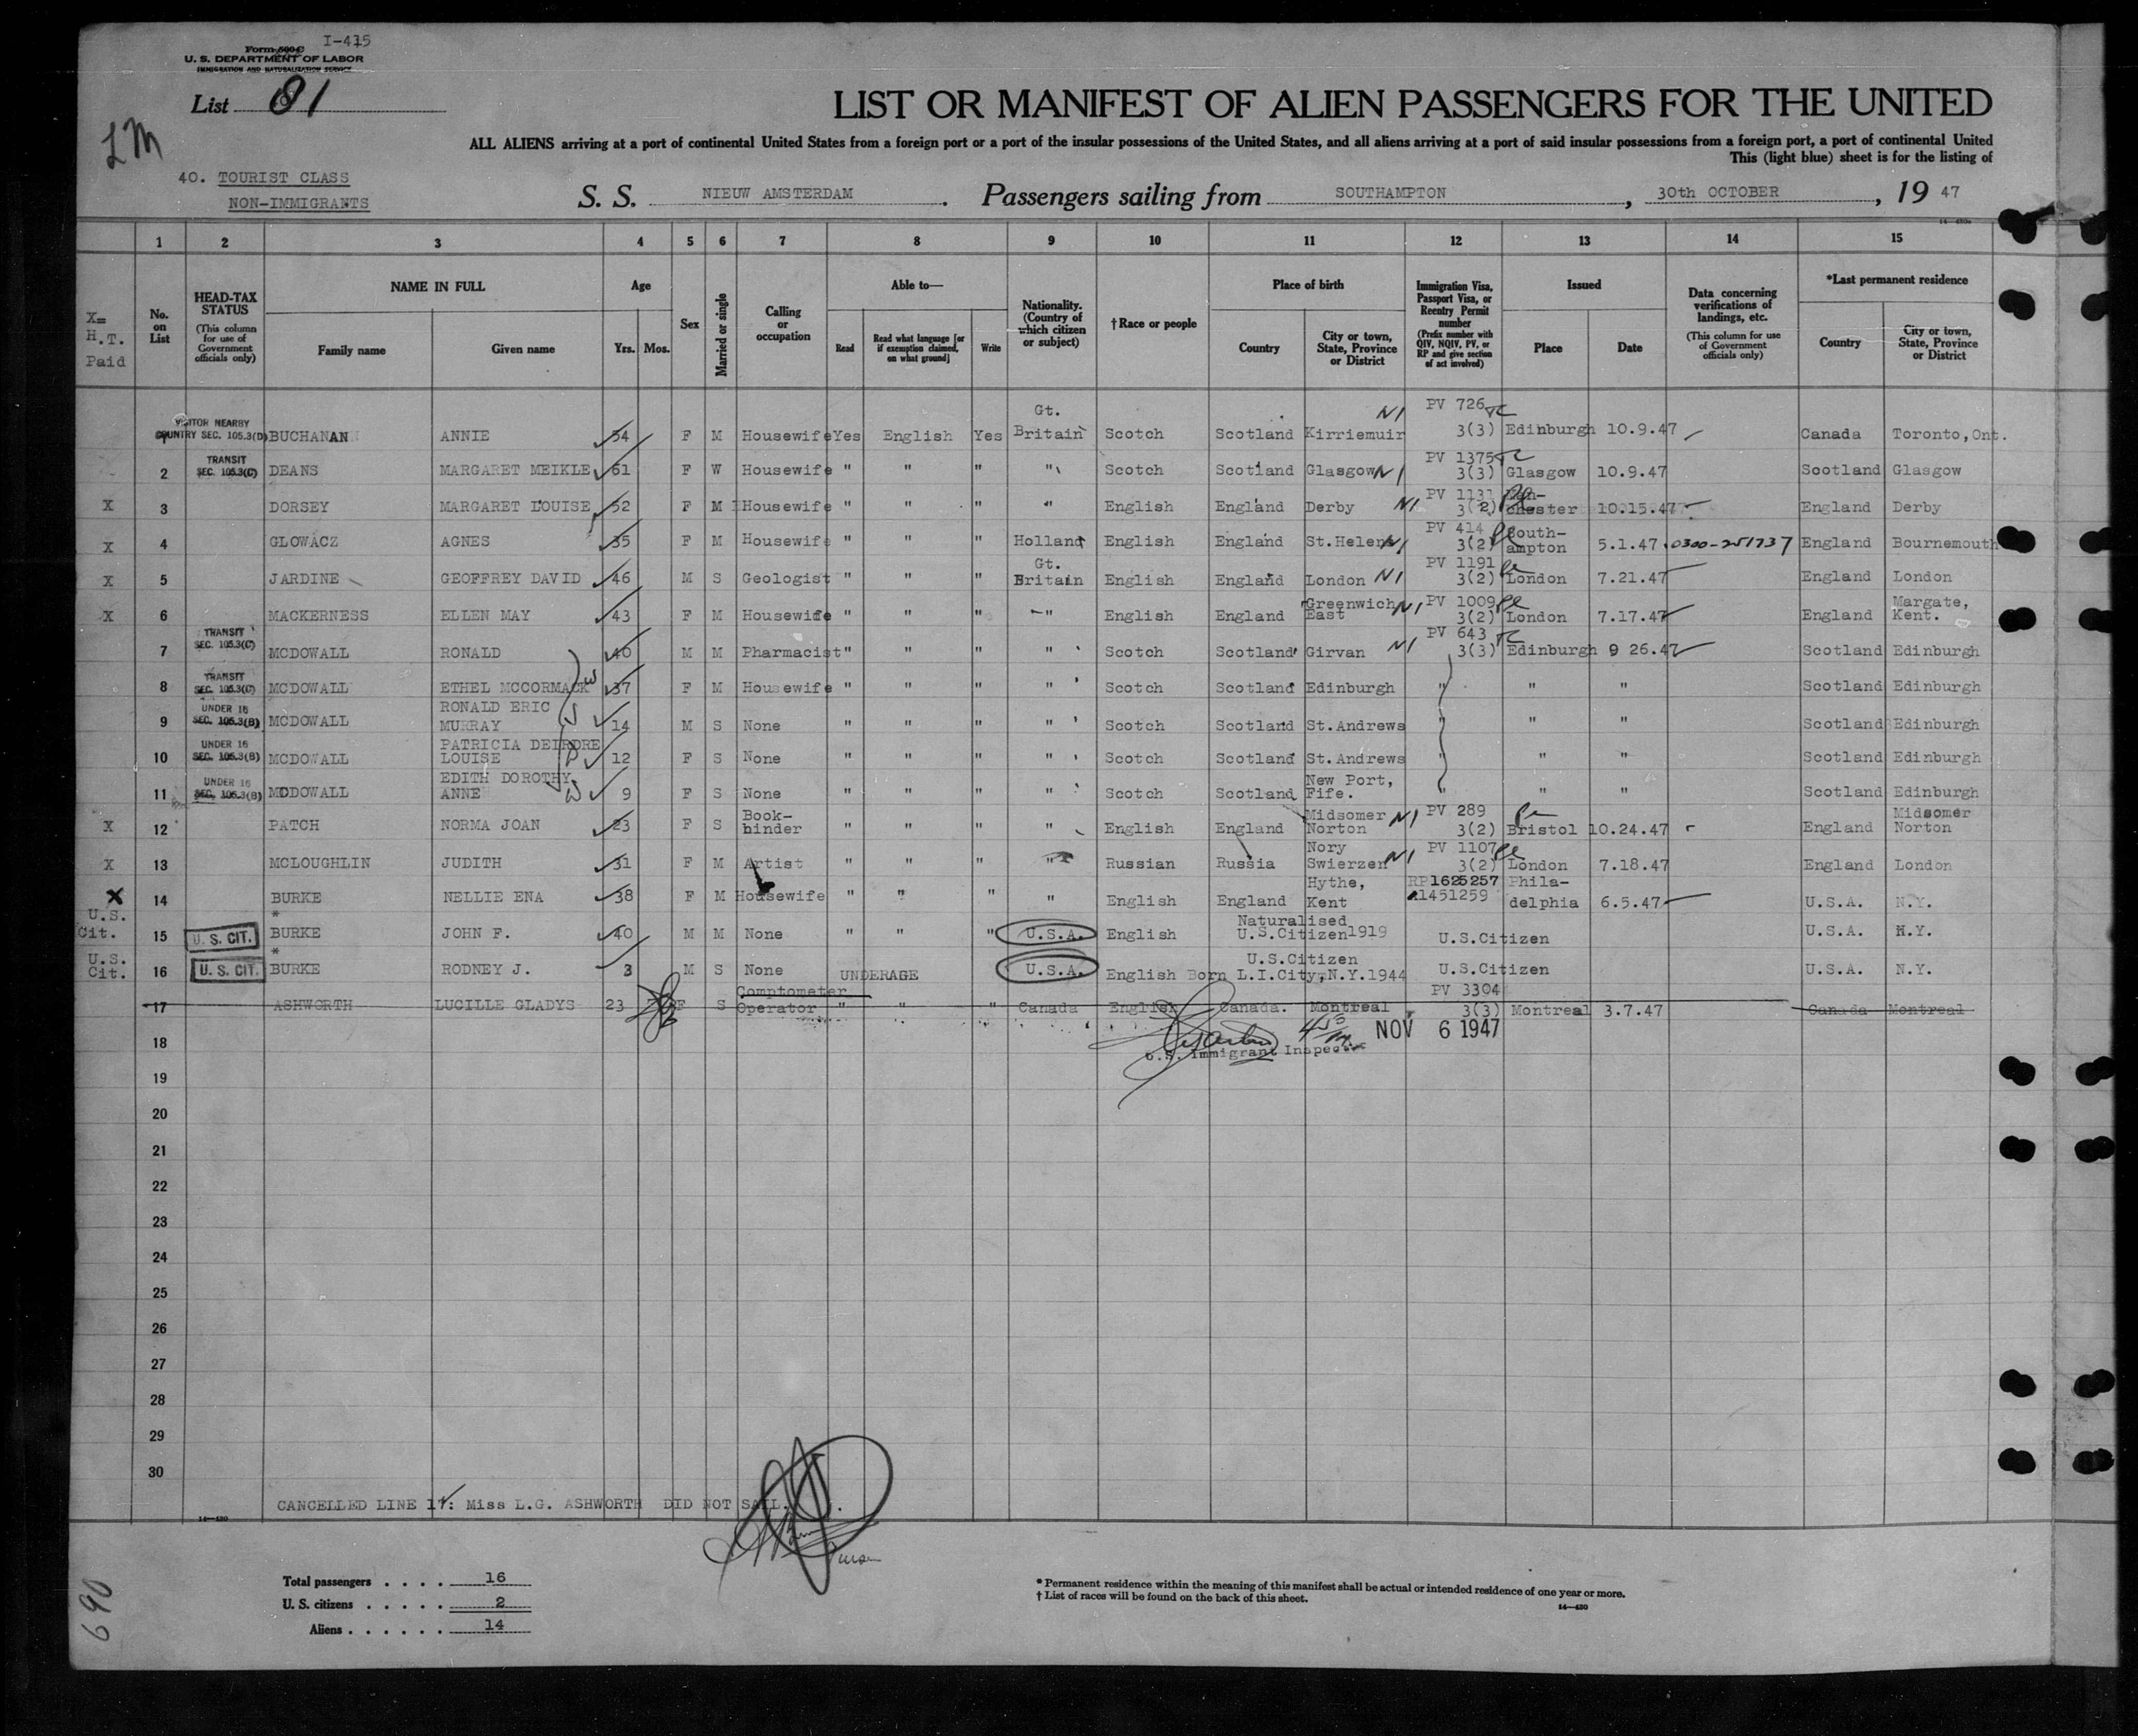 Form 500 C I-415
U. S. DEPARTMENT OF LABOR
IMMIGRATION AND NATURALIZATION SERVICE
List 81
LM
LIST OR MANIFEST OF ALIEN PASSENGERS FOR THE UNITED
ALL ALIENS arriving at a port of continental United States from a foreign port or a port of the insular possessions of the United States, and all aliens arriving at a port of said insular possessions from a foreign port, a port of continental United
This (light blue) sheet is for the listing of
40. TOURIST CLASS
NON-IMMIGRANTS
S. S. NIEUW AMSTERDAM. Passengers sailing from SOUTHAMPTON, 30th OCTOBER, 19 47
1 2 3 4 5 6 7 8 9 10 11 12 13 14 15
X= H.T. Paid
No. on List
HEAD-TAX STATUS (This column for use of Government officials only)
NAME IN FULL
Family name Given name
Age
Yrs. Mos.
Sex
Married or single
Calling or occupation
Able to—
Read Read what language [or if exemption claimed, on what ground] Write
Nationality. (Country of which citizen or subject)
†Race or people
Place of birth
Country City or town, State, Province or District
Immigration Visa, Passport Visa, or Reentry Permit number (Prefix number with QIV, NQIV, PV, or RP and give section of act involved)
Issued
Place Date
Data concerning verifications of landings, etc. (This column for use of Government officials only)
*Last permanent residence
Country City or town, State, Province or District
VISITOR NEARBY COUNTRY SEC. 105.3(D) BUCHANAN ANNIE 54 F M Housewife Yes English Yes Gt. Britain Scotch Scotland Kirriemuir NI PV 726 3(3) Edinburgh 10.9.47 Canada Toronto, Ont.
2 TRANSIT SEC. 105.3(C) DEANS MARGARET MEIKLE 61 F W Housewife " " " " Scotch Scotland Glasgow NI PV 1375 3(3) Glasgow 10.9.47 Scotland Glasgow
X 3 DORSEY MARGARET LOUISE 52 F M Housewife " " " " English England Derby NI PV 1131 3(2) chester 10.15.47 England Derby
X 4 GLOWACZ AGNES 35 F M Housewife " " " Holland English England St.Helens NI PV 414 3(2) South-ampton 5.1.47 0300-251737 England Bournemouth
X 5 JARDINE GEOFFREY DAVID 46 M S Geologist " " " Gt. Britain English England London NI PV 1191 3(2) London 7.21.47 England London
X 6 MACKERNESS ELLEN MAY 43 F M Housewife " " " " English England Greenwich East NI PV 1009 3(2) London 7.17.47 England Margate, Kent.
7 TRANSIT SEC. 105.3(C) MCDOWALL RONALD 40 M M Pharmacist " " " " Scotch Scotland Girvan NI PV 643 3(3) Edinburgh 9 26.47 Scotland Edinburgh
8 TRANSIT SEC. 105.3(C) MCDOWALL ETHEL MCCORMACK 37 F M Housewife " " " " Scotch Scotland Edinburgh " " " Scotland Edinburgh
9 UNDER 16 SEC. 105.3(B) MCDOWALL RONALD ERIC MURRAY 14 M S None " " " " Scotch Scotland St.Andrews " " " Scotland Edinburgh
10 UNDER 16 SEC. 105.3(B) MCDOWALL PATRICIA DEIRDRE LOUISE 12 F S None " " " " Scotch Scotland St.Andrews " " Scotland Edinburgh
11 UNDER 16 SEC. 105.3(B) MCDOWALL EDITH DOROTHY ANNE 9 F S None " " " " Scotch Scotland New Port, Fife. " " " Scotland Edinburgh
X 12 PATCH NORMA JOAN 23 F S Book-binder " " " " English England Midsomer Norton NI PV 289 3(2) Bristol 10.24.47 England Midsomer Norton
X 13 MCLOUGHLIN JUDITH 31 F M Artist " " " " Russian Russia Nory Swierzen NI PV 1107 3(2) London 7.18.47 England London
X 14 BURKE NELLIE ENA 38 F M Housewife " " " " English England Hythe, Kent RP1625257 1451259 Phila-delphia 6.5.47 U.S.A. N.Y.
U.S. Cit. 15 U. S. CIT. * BURKE JOHN F. 40 M M None " " " U.S.A. English Naturalised U.S.Citizen 1919 U.S.Citizen U.S.A. N.Y.
U.S. Cit. 16 U. S. CIT. * BURKE RODNEY J. 3 M S None UNDERAGE U.S.A. English U.S.Citizen Born L.I.City, N.Y. 1944 U.S.Citizen U.S.A. N.Y.
17 ASHWORTH LUCILLE GLADYS 23 F S Comptometer Operator " " " Canada English Canada. Montreal PV 3304 3(3) Montreal 3.7.47 Canada Montreal
18 NOV 6 1947
U.S. Immigrant Inspector
19
20
21
22
23
24
25
26
27
28
29
30
CANCELLED LINE 17: Miss L.G. ASHWORTH DID NOT SAIL.
14—420
Total passengers . . . . 16
U. S. citizens . . . . . 2
Aliens . . . . . . 14
* Permanent residence within the meaning of this manifest shall be actual or intended residence of one year or more.
† List of races will be found on the back of this sheet.
14—420
690